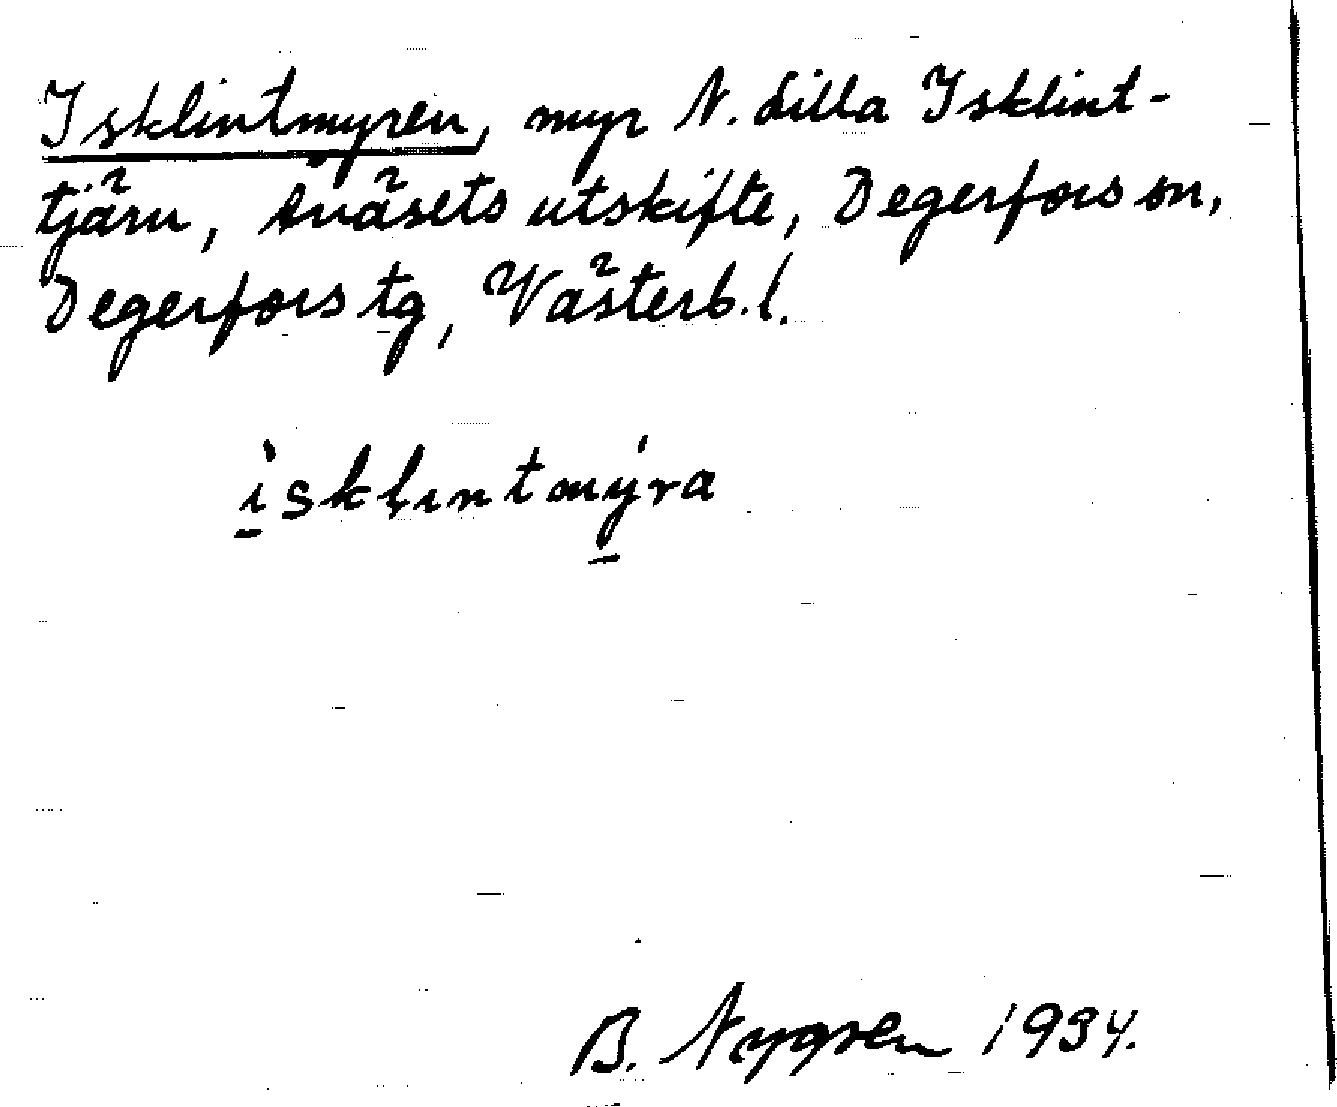 Isklintmyren, myr N. Lilla Isklint-
tjärn, Avasets utskifte, Degerfors sn,
Degerfors tg, Västerb. l.
ìsklintmýra
B. Nygren 1934.